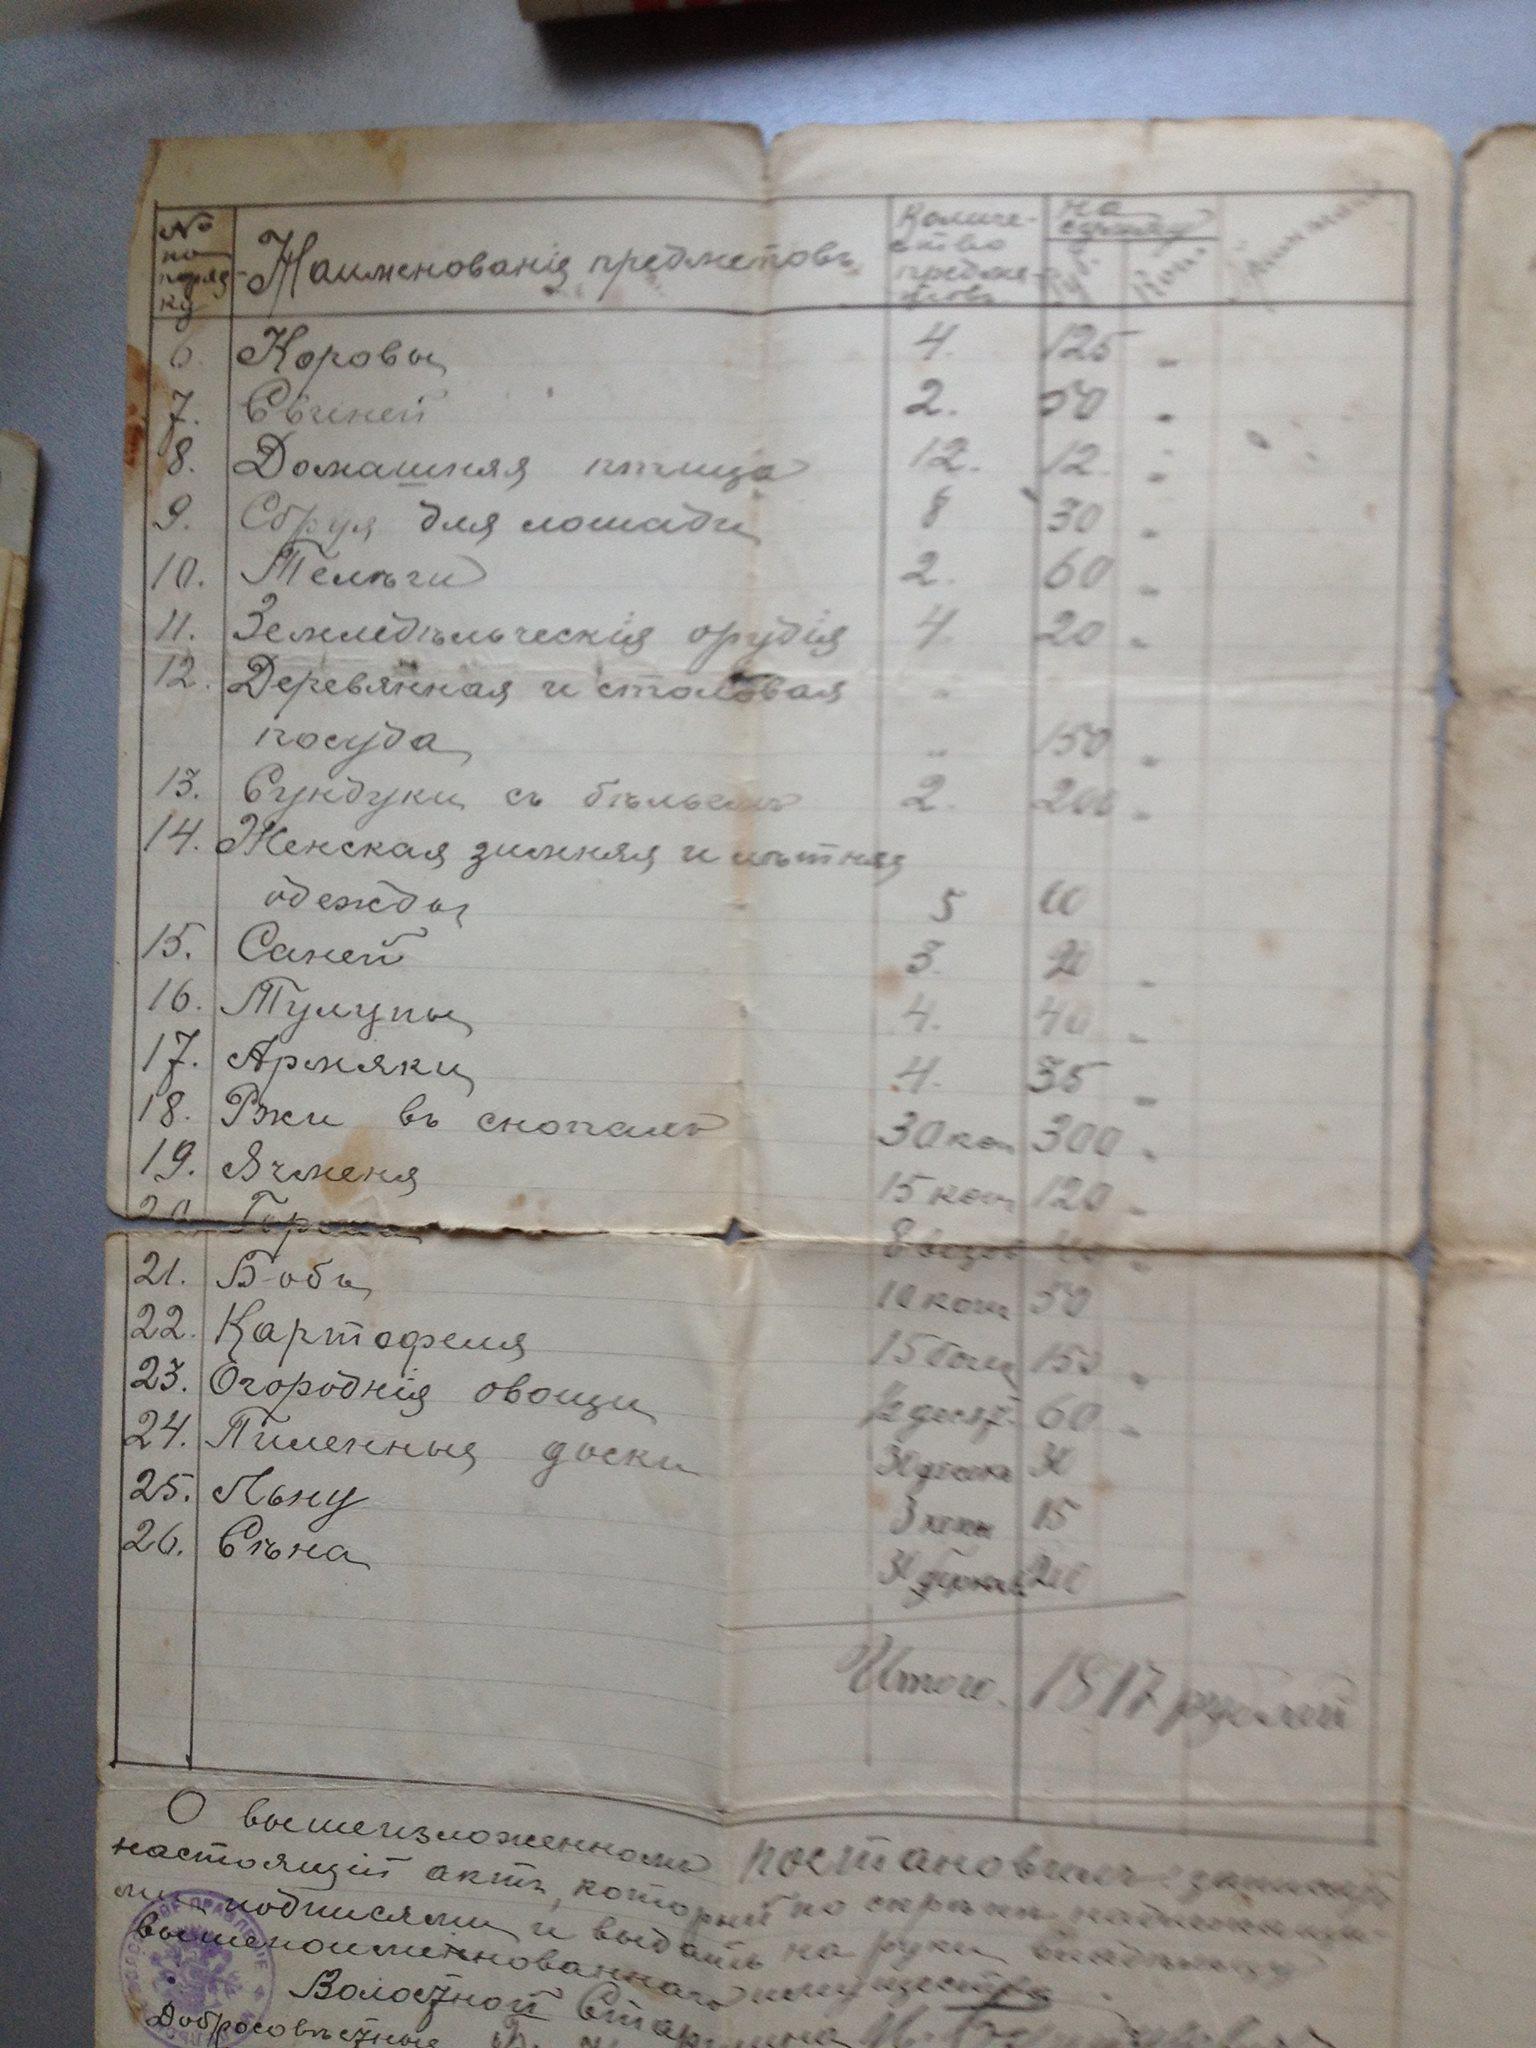 № по поряд-ку Наименованiя предметовъ Количе-ство предме-товъ На сумму Руб. Коп.
6. Коровы 4. 125 "
7. Свиней 2. 50 "
8. Домашняя птица 12. 12. "
9. Сбруя для лошади 8 30 "
10. Телѣги 2. 60 "
11. Земледѣльческiя орудiя 4 20 "
12. Деревянная и столовая "
посуда " 150 "
13. Сундуки съ бѣльемъ 2. 200 "
14. Женская зимняя и лѣтняя
одежды 5
15. Саней 3. "
16. Тулупы 4. 40 "
17. Армяки 4. 35 "
18. Ржи въ снопахъ 30 коп 300 "
19. Ячменя 15 коп 120 "
20. 8 возовъ "
21. Бобъ 10 коп 50
22. Картофеля 15 150 "
23. Огороднiя овощи ½ десят. 60 "
24. Пиленныя доски 30 досокъ 30
25. Льну 3 копы 15
26. Сѣна 30
Итого. 1817 рублей
О вышеизложенномъ постановилъ: записать
настоящiй актъ, который по скрѣпѣ надлежащи-
ми подписями и выдать на руки владѣльцу
вышепоименованнаго имущества.
Волостной Старшина
Добросовѣстные